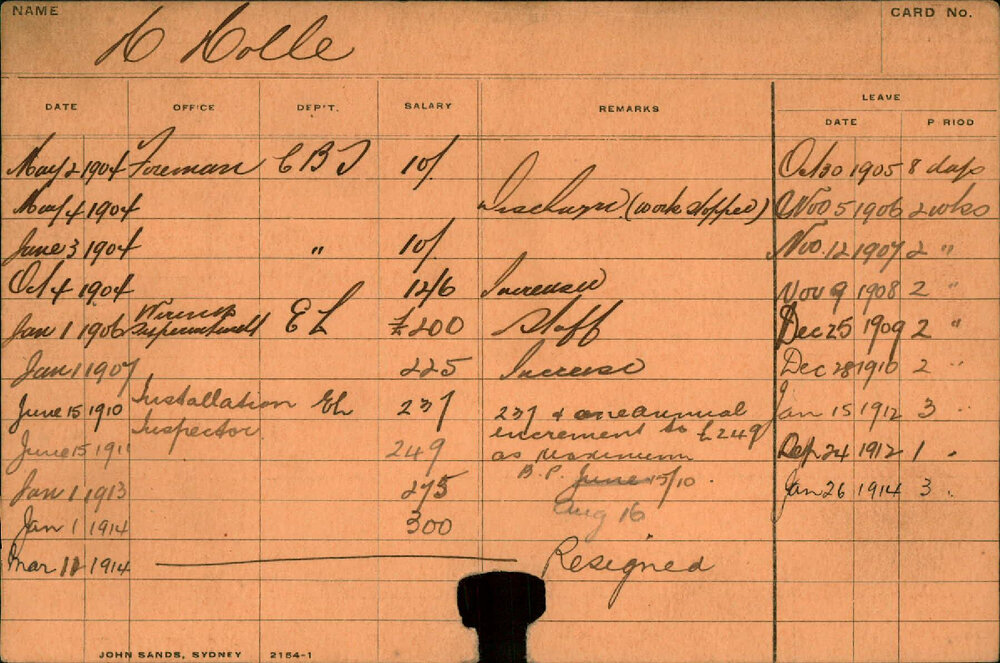 NAME
CARD No.
H Holle
DATE OFFICE DEP'T. SALARY REMARKS LEAVE
DATE P RIOD
May 2 1904 Foreman C B T 10/ Oct 30 1905 8 days
May 4 1904 (work stopped) Nov 5 1906 2 wks
June 3 1904 " 10/ Nov. 12 1907 2 "
Oct 4 1904 12/6 Increase Nov 9 1908 2 "
Jan 1 1906 Wiring E L £200 Staff Dec 25 1909 2 "
Superintendt
Jan 1 1907 225 Increase Dec 28 1910 2 "
June 15 1910 Installation EL 237 237 & one annual Jan 15 1912 3 "
Inspector increment to £249
June 15 1911 249 as maximum Sep 24 1912 1 "
B.P. June 15/10.
Jan 1 1913 275 Jan 26 1914 3 "
Aug 16
Jan 1 1914 300
Mar 11 1914 Resigned
JOHN SANDS, SYDNEY 2154-1